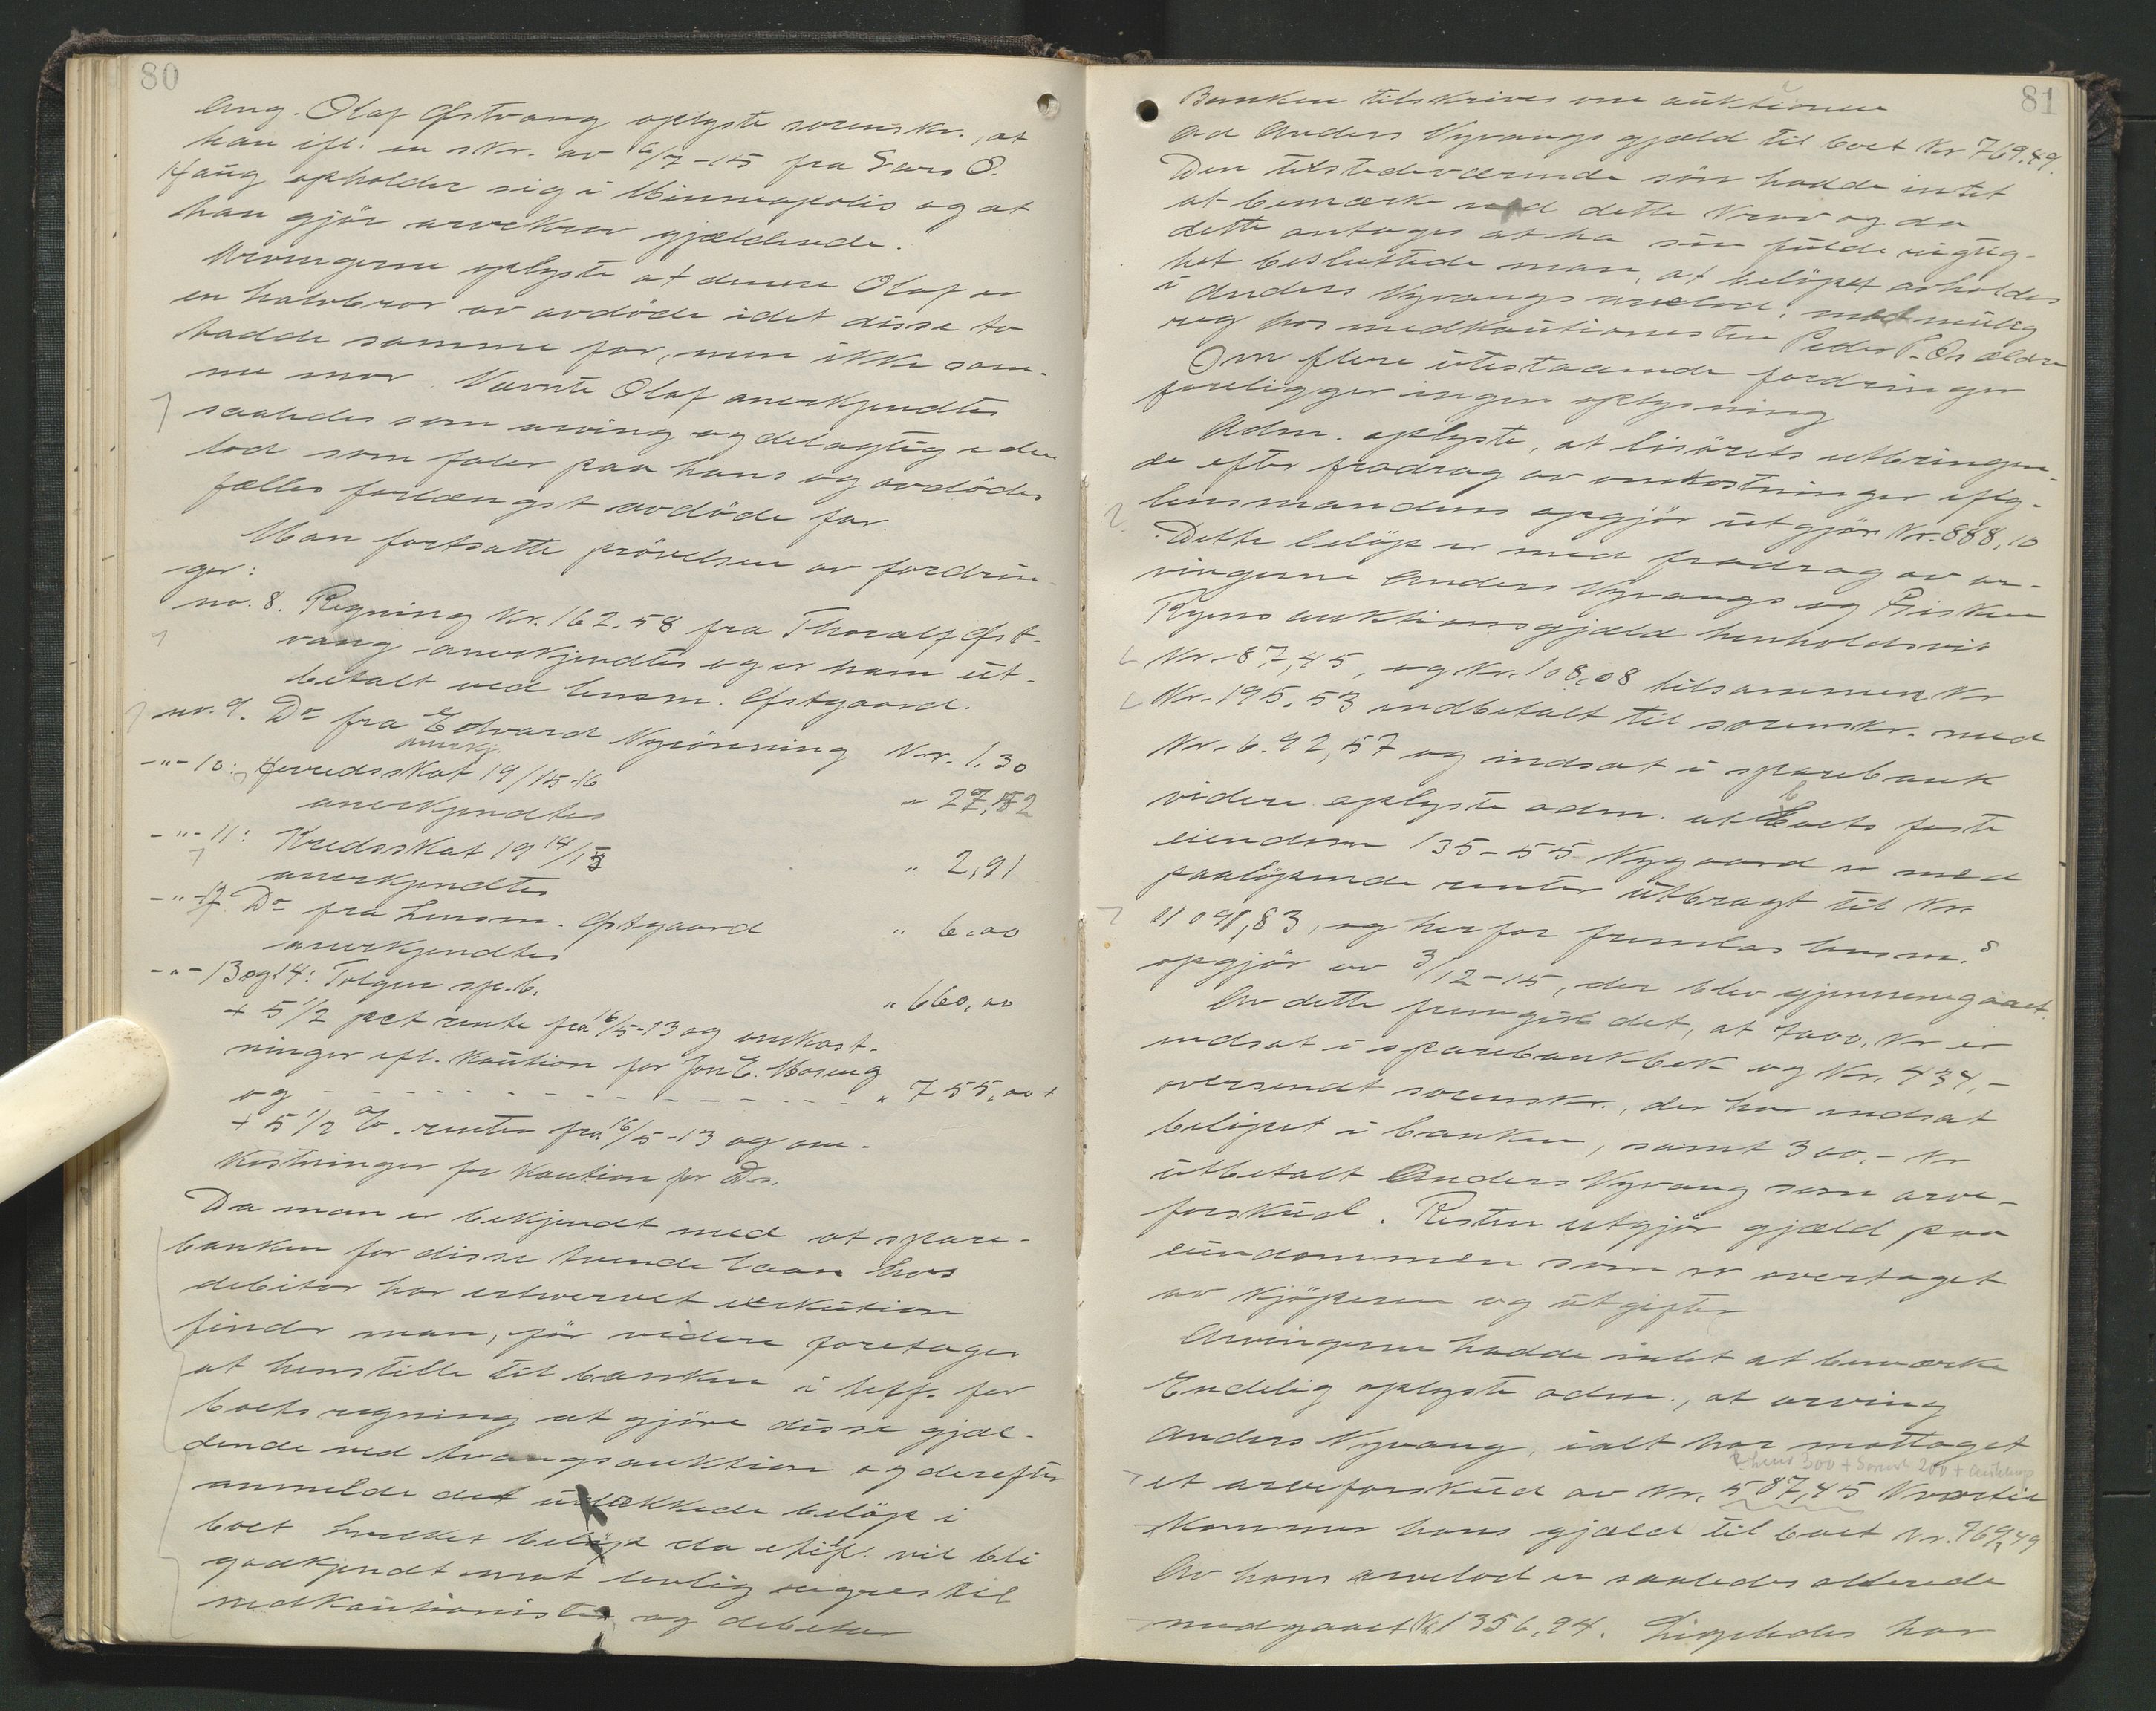 80
Ang. Olaf Østvang oplyste sorenskr., at
han ifl. en skr. av 6/7-15 fra Lars O.
Haug opholder sig i Minneapolis og at
han gjör arvekrav gjældende.
Arvingerne oplyste at denne Olaf er
en halvbror av avdöde idet disse to
hadde samme far, men ikke sam-
me mor. Nævnte Olaf anerkjendtes
saaledes som arving og delagtig i den
lod som faler paa hans og avdödes
fælles forlængst avdöde far.
Man fortsatte prövelsen av fordrin-
ger:
no. 8. Regning Kr. 162.58 fra Thoralf Øst-
vang anerkjendtes og er ham ut-
betalt ved lensm. Østgaard.
nr. 9. Do fra Edvard Nyrönning Kr. 1.30
anerkj.
-"- 10: Herredsskat 19/15-16
anerkjendtes " 27,82
-"- 11: Kredsskat 19 14/15
anerkjendtes " 2,91
-"- 12. Do fra Lensm. Østgaard " 6,00
anerkjendtes
-"- 13 og 14: Tolgen sp.b. " 660,00
+ 5 1/2 pct rente fra 16/5-13 og omkost-
ninger ifl. kaution for Jon E. Moseng
og - - - - - - - - - - " 755,00 +
+ 5 1/2 % renter fra 16/5-13 og om-
kostninger for kaution for Do.
Da man er bekjendt med at spare-
banken for disse tvende laan hos
debitor har erhvervet exekution
finder man, för videre foretages
at henstille til banken i tilf. for
boets regning at gjöre disse gjæl-
dende ved tvangsauktion og derefter
anmelde det udækkede belöp i
boet hvilket belöp da vil bli
godkjendt mot lovlig regres til
medkautionister og debitor
81
Banken tilskrives om auktionen
Ad Anders Nyvangs gjæld til boet Kr 769,49.
Den tilstedeværende sön hadde intet
at bemærke ved dette krav og da
dette antages at ha sin fulde rigtig-
het besluttede man, at belöpet avholdes
i Anders Nyvangs arvelod, med mulig
reg hos medkautionisten Peder P. Os ældre
Om flere utestaaende fordringer
foreligger ingen oplysning
Adm. oplyste, at lösörets utbringen-
de efter fradrag av omkostninger iflg.
lensmandens opgjör utgjör Kr. 888,10
Dette belöp er med fradrag av ar-
vingerne Anders Nyvangs og Pisken
Ryens auktionsgjæld henholdsvis
Kr. 87,45, og Kr. 108,08 tilsammen Kr
Kr. 195.53 indbetalt til sorenskr. med
Kr. 692,57 og indsat i sparebank
videre oplyste adm. at boets faste
eiendom 135-55 Nygaard er med
paalöpende renter utbragt til Kr.
11091,83, og herfor fremlas lensm.s
opgjör av 3/12-15, der blev gjennemgaaet.
Av dette fremgik det, at 7000. Kr er
indsat i sparebankbok og Kr. 434,-
oversendt sorenskr., der har indsat
belöpet i banken, samt 300,- Kr
utbetalt Anders Nyvang som arve-
forskud. Resten utgjör gjæld paa
eiendommen som er overtaget
av kjöperen og utgifter
Arvingerne hadde intet at bemærke
Endelig oplyste adm., at arving
Anders Nyvang, ialt har mottaget
lens 300 + Sorensk. 200 +
et arveforskud av Kr. 587,45 hvortil
kommer hans gjæld til boet Kr. 769,49
Av hans arvelod er saaledes allerede
medgaaet Kr 1356,94. Ligeledes har